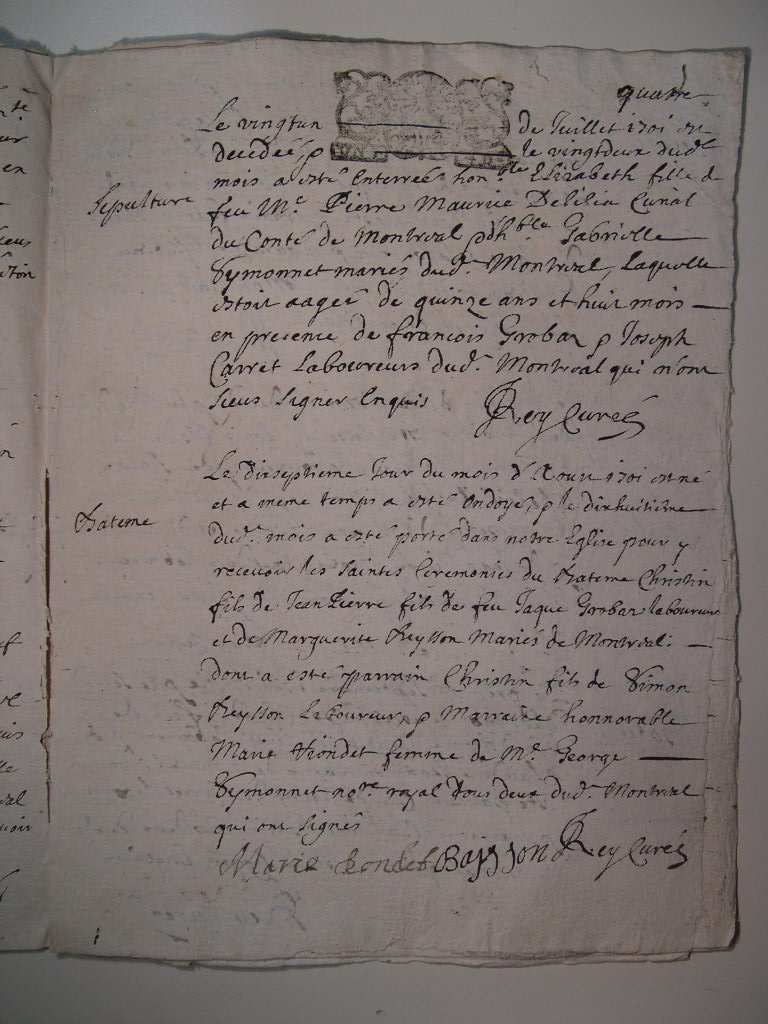 quatre
Le vingtun de Juillet 1701 est
decedeé, & le vingtdeux dud.
mois a esté enterreé hon.ble Elizabeth fille d
Sepulture
feu M.e Pierre Maurice Delilia
du Conté de Montreal & d'h.ble Gabrielle
mariés dud. Montreal, Laquelle
estoit aageé de quinze ans et huit mois
en presence de francois Grobaz & Joseph
Carret Laboureurs dud. Montreal qui n'ont
sceus signer Enquis
Rey Curé
Le dixseptieme Jour du mois d'Aoust 1701 est né
et a meme temps a esté ondoyé, & le dixhuitieme
Bateme
dud. mois a esté porté dans notre Eglise pour y
recevoir les saintes Ceremonies du Bateme Christin
fils de Jean Pierre fils de feu Jaque Grobaz laboureur
et de Marguerite Reysson Mariés de Montreal:
dont a esté parrain Christin fils de Simon
Reysson Laboureur, & Marraine honnorable
Marie femme de M.e George
not.re royal Tous deux dud. Montreal
qui ont signés
Marie Rey Curé